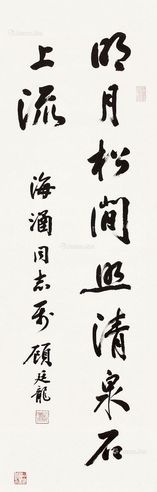 明月松间照清泉石
上流
海涵同志属 顾廷龙